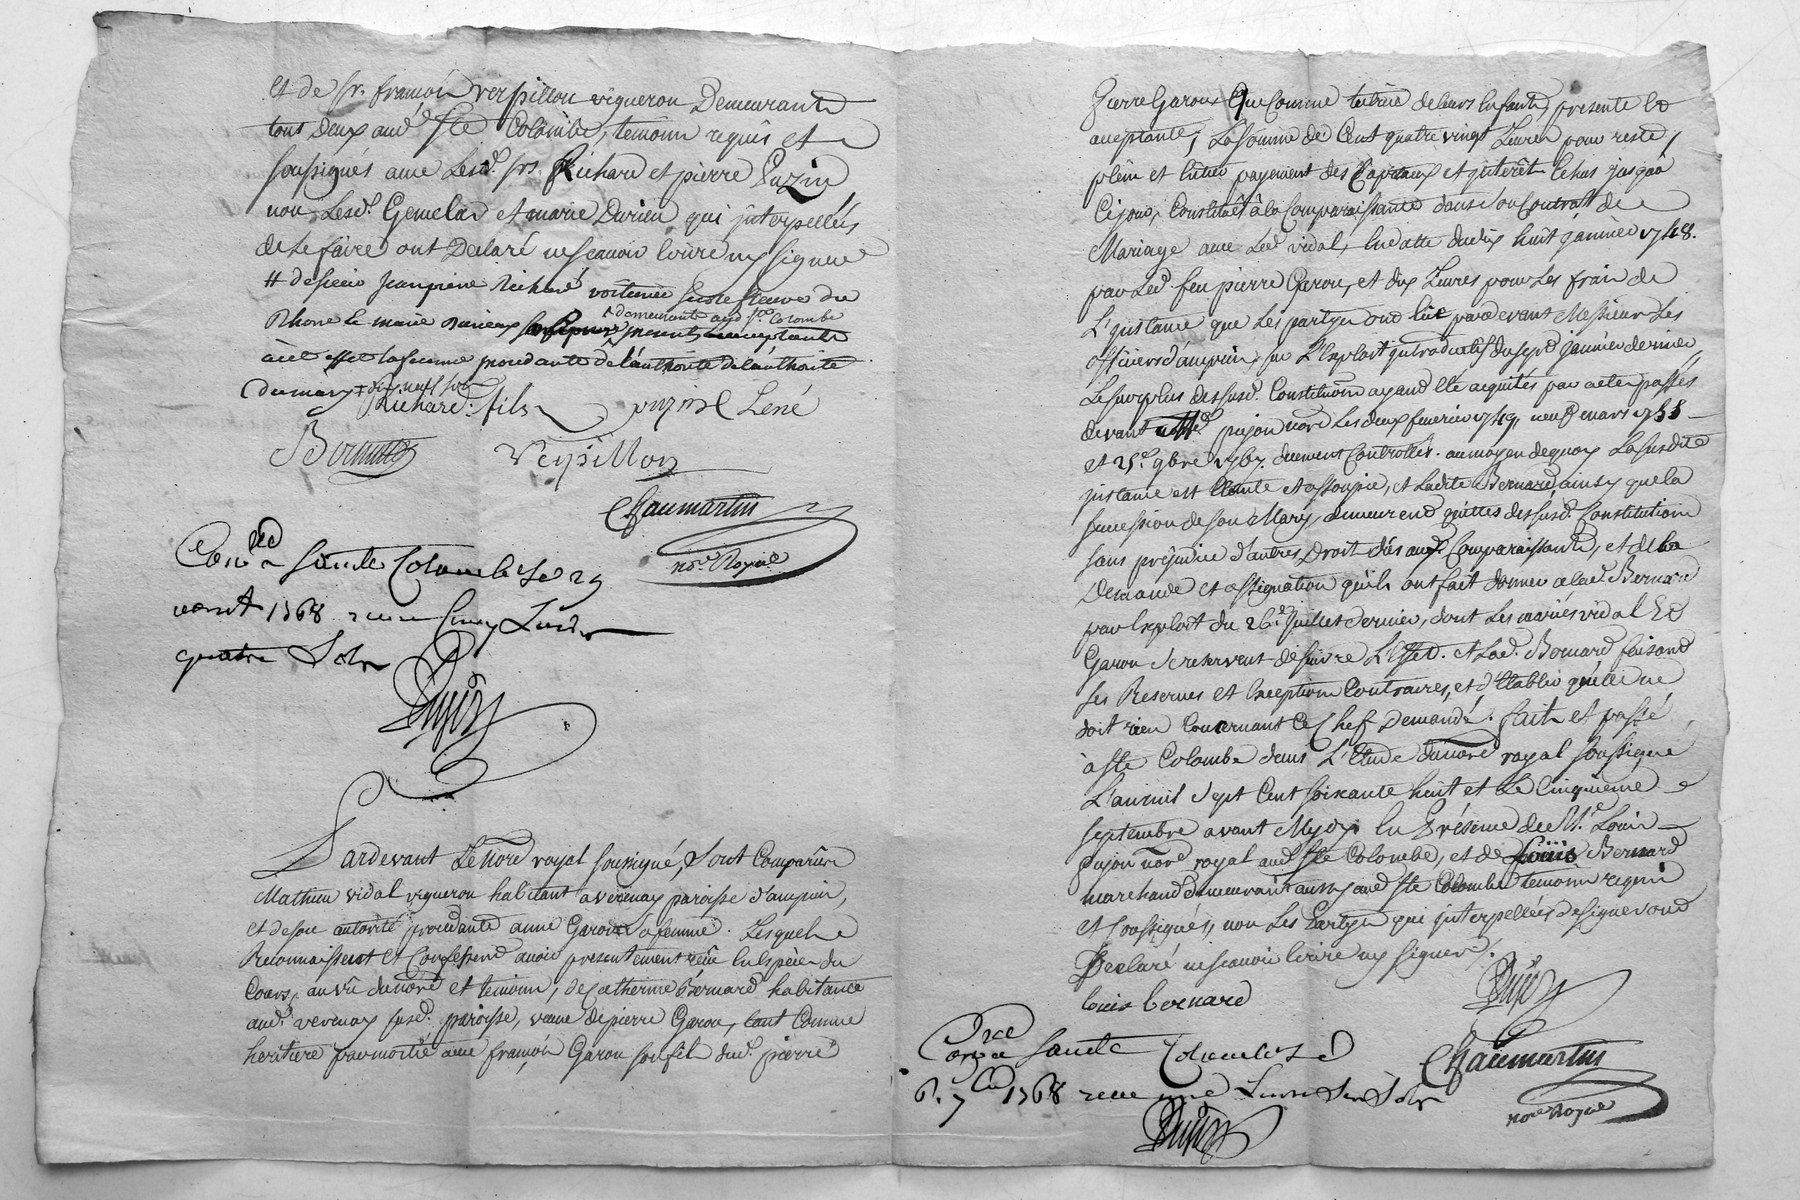 et de Sr. françois verpillon vigneron Demeurants
tous Deux aud. Ste Colombe, temoins requis et
soussignés avec Lesd. srs. Richard et pierre Puzin
non Lesd. Gemelas et marie Durieu qui jnterpellés
de Le faire ont Declaré ne scavoir Ecrire ny signer
# de sieur Jean pierre Richard voiturier sur le fleuve du
demeurants aud. Ste. Colombe
Rhone et marie Durieux
a cet effet la femme procedante de l'authorité de l'authorité
du mary
Richard fils puzin Lené
Bernard Verpillon
Chaumartin
no.re Royal
Con.lé a Sainte Colombe Le 29
aout 1768 reçu Cinq Livres
quatre Sols
Dujon
Pardevant Le no.re royal soussigné, Sont Comparus
Mathieu vidal vigneron habitant a verenay paroisse d'ampuis,
et de son autorité procedante anne Garon sa femme. Lesquels
Reconnaissent et Confessent avoir presentement reçu En Espèces du
Cours, au vû du no.re et temoins, de Catherine Bernard habitante
aud. verenay susd. paroisse, veuve de pierre Garon, tant Comme
heritiere par moitié avec françois Garon son fils dud. pierre
Pierre Garon Que Comme tutrice de leurs Enfants, presente Et
acceptante, La somme de Cent quatre vingt Livres pour reste,
plein et Entier payement des Capitaux et jnterêt Echus jusqu'à
Ce jour, Constitués à la Comparaissante dans son Contrat de
Mariage avec Led. vidal, En datte du dix huit janvier 1748.
par Led. feu pierre Garon, et dix Livres pour Les frais de
L'jnstance que Les partyes ont Eue pardevant Messieurs Les
officiers d'ampuis, sur L'Exploit jntroductif du sept janvier dernier
Le surplus desusd. Constitution ayant Eté acquités par actes passés
devant Me. Dujon no.re Les deux fevrier 1749, neuf mars 1755
et 25. 9bre 1767. duement Controllés. au moyen de quoy La susdite
jnstance est Eteinte et assoupie, et Ladite Bernard ainsy que la
succession de son Mary, demeurent quittes desusd. Constitution
sans prejudice d'autres Droit dûs aux Comparaissants, et de La
Demande et assignation qu'ils ont fait donner a lad. Bernard
par Exploit du 26. Juillet dernier, dont Les mariés vidal Et
Garon se reservent de suivre L'Effet. et Lad. Bernard faisant
ses Reserves et Exceptions Contraires, et d'Etablir qu'elle ne
doit rien Concernant Ce Chef Demandé. fait et passé
à Ste Colombe dans L'Etude du no.re royal soussigné
L'an mil sept Cent soixante huit et Le Cinquieme
septembre avant Mydy En Présence de Me. Louis
Dujon no.re royal aud. Ste Colombe, et de Louis Bernard
marchand demeurant aussy aud. Ste Colombe temoins requis
et soussignés, non Les Partyes qui jnterpellées de signer ont
Declaré ne scavoir Ecrire ny signer.
louis bernard
Dujon
Con.lé a Sainte Colombe Le
6. 7bre 1768 reçu une Livre six Sols
Chaumartin
no.re Royal
Dujon